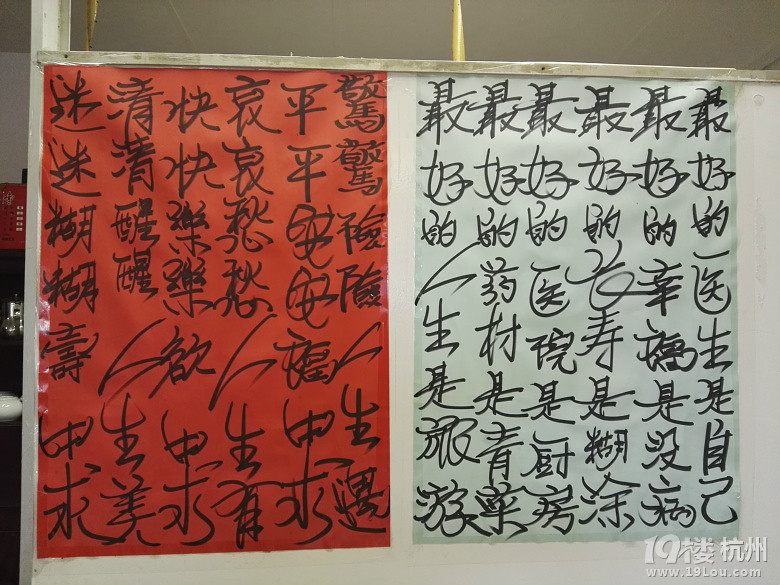 驚驚險險人生遇
平平安安福中求
哀哀愁愁人生有
快快樂樂欲中求
清清醒醒人生美
迷迷糊糊壽中求
最好的医生是自己
最好的幸福是没病
最好的长寿是糊涂
最好的医院是厨房
最好的药材是青菜
最好的人生是旅游
19楼杭州
www.19Lou.com